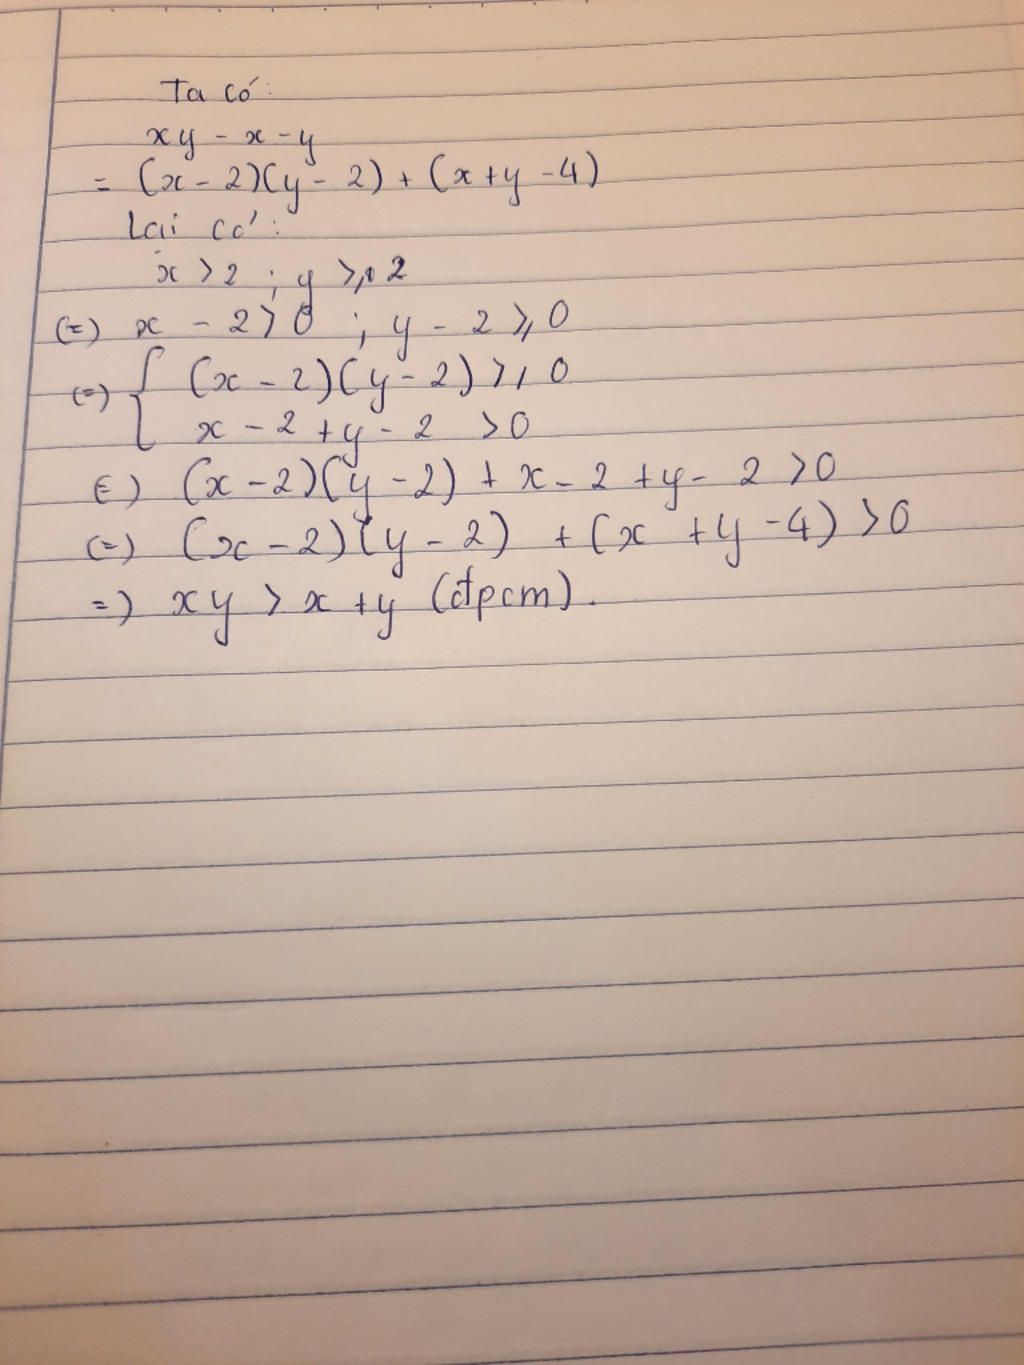 Ta có:
xy - x - y
= (x - 2)(y - 2) + (x + y - 4)
Lại có:
x > 2 ; y ⩾ 2
(=) x - 2 > 0 ; y - 2 ⩾ 0
(=) { (x - 2)(y - 2) ⩾ 0
x - 2 + y - 2 > 0
(=) (x - 2)(y - 2) + x - 2 + y - 2 > 0
(=) (x - 2)(y - 2) + (x + y - 4) > 0
=) xy > x + y (đpcm).